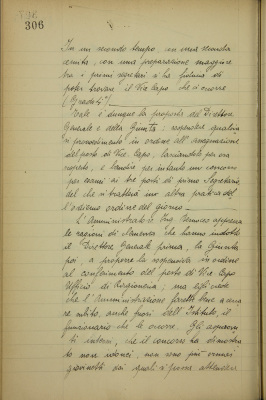 306
In un secondo tempo, in una seconda
con una preparazione maggiore
tra i primi segretari si ha fiducia di
poter trovare il Vice Capo che occorre
Tale è dunque la proposta del Direttore
Generale e della Giunta: soprassedere qualsiasi
provvedimento in ordine all'assegnazione
del posto di Vice Capo, lasciandolo per ora
scoperto, e bandire per intanto un concorso
per esami ai tre posti di primo Segretario,
del che si tratterà in altra pratica del
l'odierno ordine del giorno.
L'Amministratore
le ragioni di che hanno indotto
il Direttore Generale prima, la Giunta
poi a proporre la in ordine
al conferimento del posto di Vice Capo
Ufficio di Ragioneria; ma egli crede
che l'Amministrazione farebbe bene a cerca
re subito, anche fuori dell'Istituto, il
funzionario che le occorre. Gli
ti interni, che il concorso ha dimostra
to non idonei, non sono più ormai
giovinotti dai quali si possa attendere